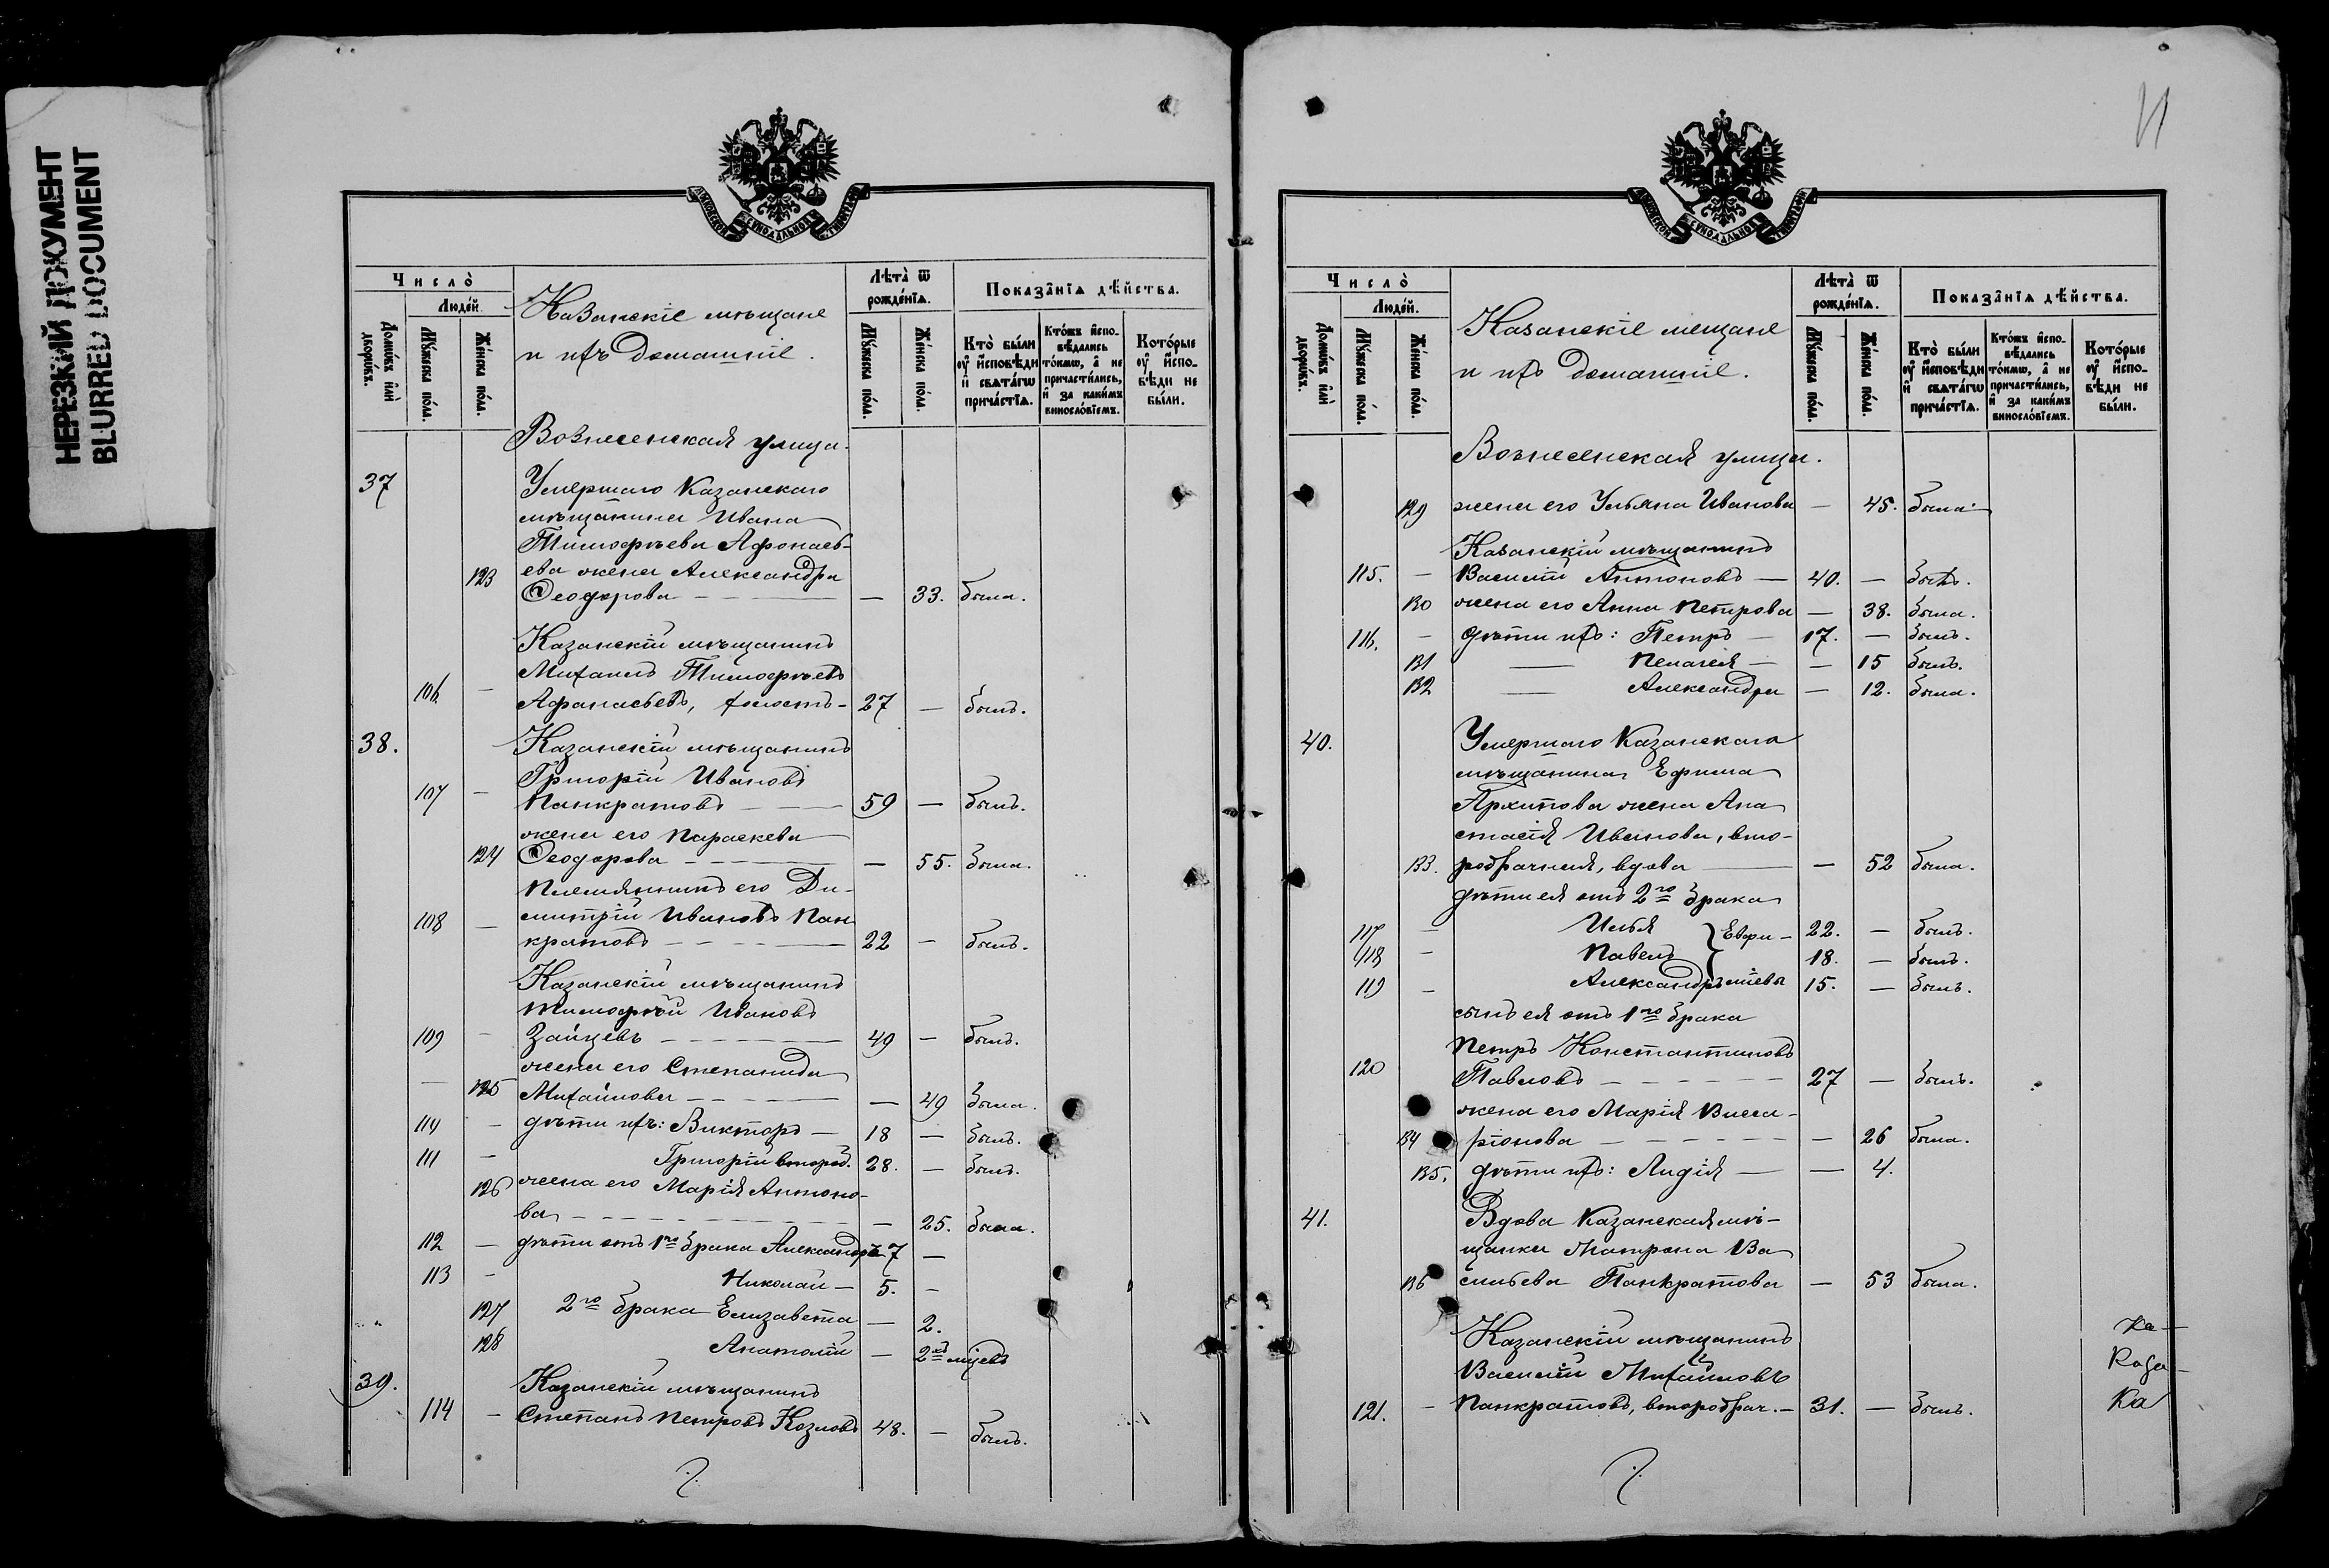 НЕРЕЗКИЙ ДОКУМЕНТ
BLURRED DOCUMENT
МОСКОВСКОЙ СѴНОДАЛЬНОЙ ТИПОГРАФІИ
Число̀
Людей.
Домѡвъ илѝ дворѡвъ.
Мꙋжеска пола.
Женска пола.
Казанскіе мѣщане
и ихъ домашніе.
Лѣта̀ ѿ рожденїѧ.
Мꙋжеска пола.
Женска пола.
Показанїѧ дѣйства.
Кто̀ были ᲂу҆ исповѣди и свѧтагѡ причастїѧ.
Ктожъ исповѣдались токмѡ, а не причастились, и за какимъ винословїемъ.
Которые ᲂу҆ исповѣди не были.
Вознесенская улица.
37 Умершаго Казанскаго
мѣщанина Ивана
Тимофѣева Афонась-
123 ева жена Александра
Ѳеодорова — — 33. была.
Казанскій мѣщанинъ
Михаилъ Тимофѣевъ
106. — Афанасьевъ, холостъ - 27 — былъ.
38. Казанскій мѣщанинъ
Григорій Ивановъ
107 — Панкратовъ — 59 — былъ.
жена его Параскева
124 Ѳеодорова — — 55. была.
Племянникъ его Ди-
108 — митрій Ивановъ Пан
кратовъ — 22 — былъ.
Казанскій мѣщанинъ
Тимофѣй Ивановъ
109 — Зайцевъ — 49 — былъ.
жена его Степанида
— 125 Михайлова — — 49 была.
110 — дѣти ихъ: Викторъ — 18 — былъ.
111 — Григорій второб. 28. — былъ.
126 жена его Марія Антоно-
ва — — 25. была.
112 — дѣти отъ 1го брака Александръ 7 —
113 — Николай — 5. —
127 2го брака Елизавета — 2.
128 Анатолій — 2хъ мцевъ
39. Казанскій мѣщанинъ
114 — Степанъ Петровъ Козловъ 48. — былъ.
МОСКОВСКОЙ СѴНОДАЛЬНОЙ ТИПОГРАФІИ
Число̀
Людей.
Домѡвъ илѝ дворѡвъ.
Мꙋжеска пола.
Женска пола.
Казанскіе мещане
и ихъ домашніе.
Лѣта̀ ѿ рожденїѧ.
Мꙋжеска пола.
Женска пола.
Показанїѧ дѣйства.
Кто̀ были ᲂу҆ исповѣди и свѧтагѡ причастїѧ.
Ктожъ исповѣдались токмѡ, а не причастились, и за какимъ винословїемъ.
Которые ᲂу҆ исповѣди не были.
Вознесенская улица.
129 жена его Ульяна Иванова — 45. была
Казанскій мѣщанинъ
115. — Василій Антоновъ — 40. — былъ.
130 жена его Анна Петрова — 38. была.
116. — дѣти ихъ: Петръ — 17. — былъ.
131 — Пелагея — — 15 былъ.
132 — Александра — 12. была.
40. Умершаго Казанскаго
мѣщанина Ефима
Архипова жена Ана
стасія Иванова, вто-
133. робрачная, вдова — — 52 была.
дѣти ея отъ 2го брака
117 — Илья } Ефи- 22. — былъ.
118 — Павелъ 18. — былъ.
119 — Александръ мовы 15. — былъ.
сынъ ея отъ 1го брака
Петръ Константиновъ
120 Павловъ — 27 — былъ.
жена его Марія Висса-
134 ріонова — — 26 была.
135. дѣти ихъ: Лидія — — 4.
41. Вдова Казанская мѣ-
щанка Матрона Ва
136 сильева Панкратова — 53 была.
Казанскій мѣщанинъ
Василій Михайловъ
121. — Панкратовъ, второбрач. — 31. — былъ.
Ка
Ка